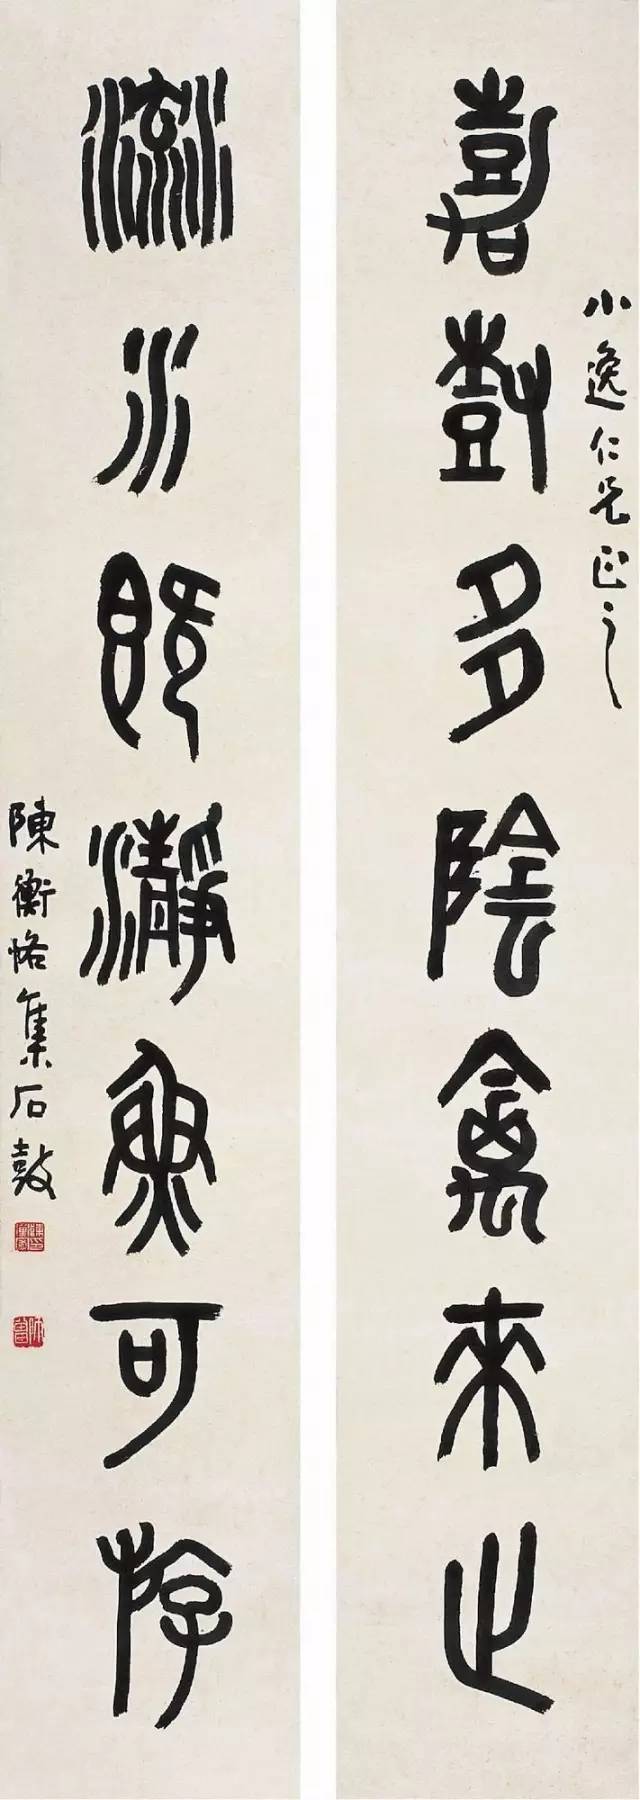 小逸仁兄正之
嘉樹多陰禽來止
流水既瀞魚可斿
陳衡恪集石鼓
師曾